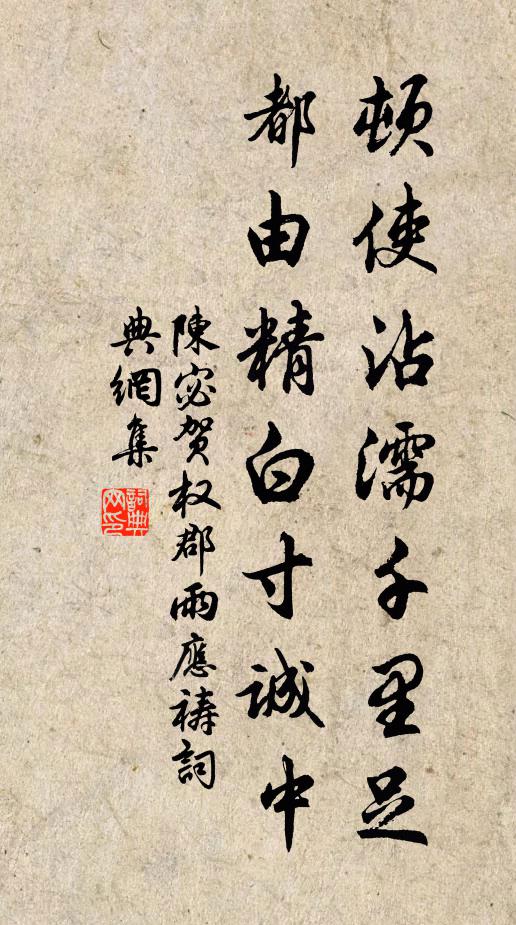 頓使沾濡千里足
都由精白寸誠中
陳宓賀权郡雨應禱詞
典網集
詞典網印